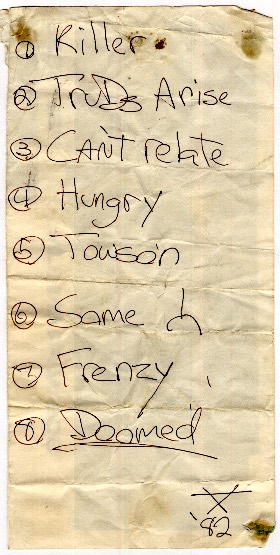 ① Killer
② TruDs Arise
③ CAN'T relate
④ Hungry
⑤ Towson
⑥ Same
⑦ Frenzy
⑧ Doomed
'82